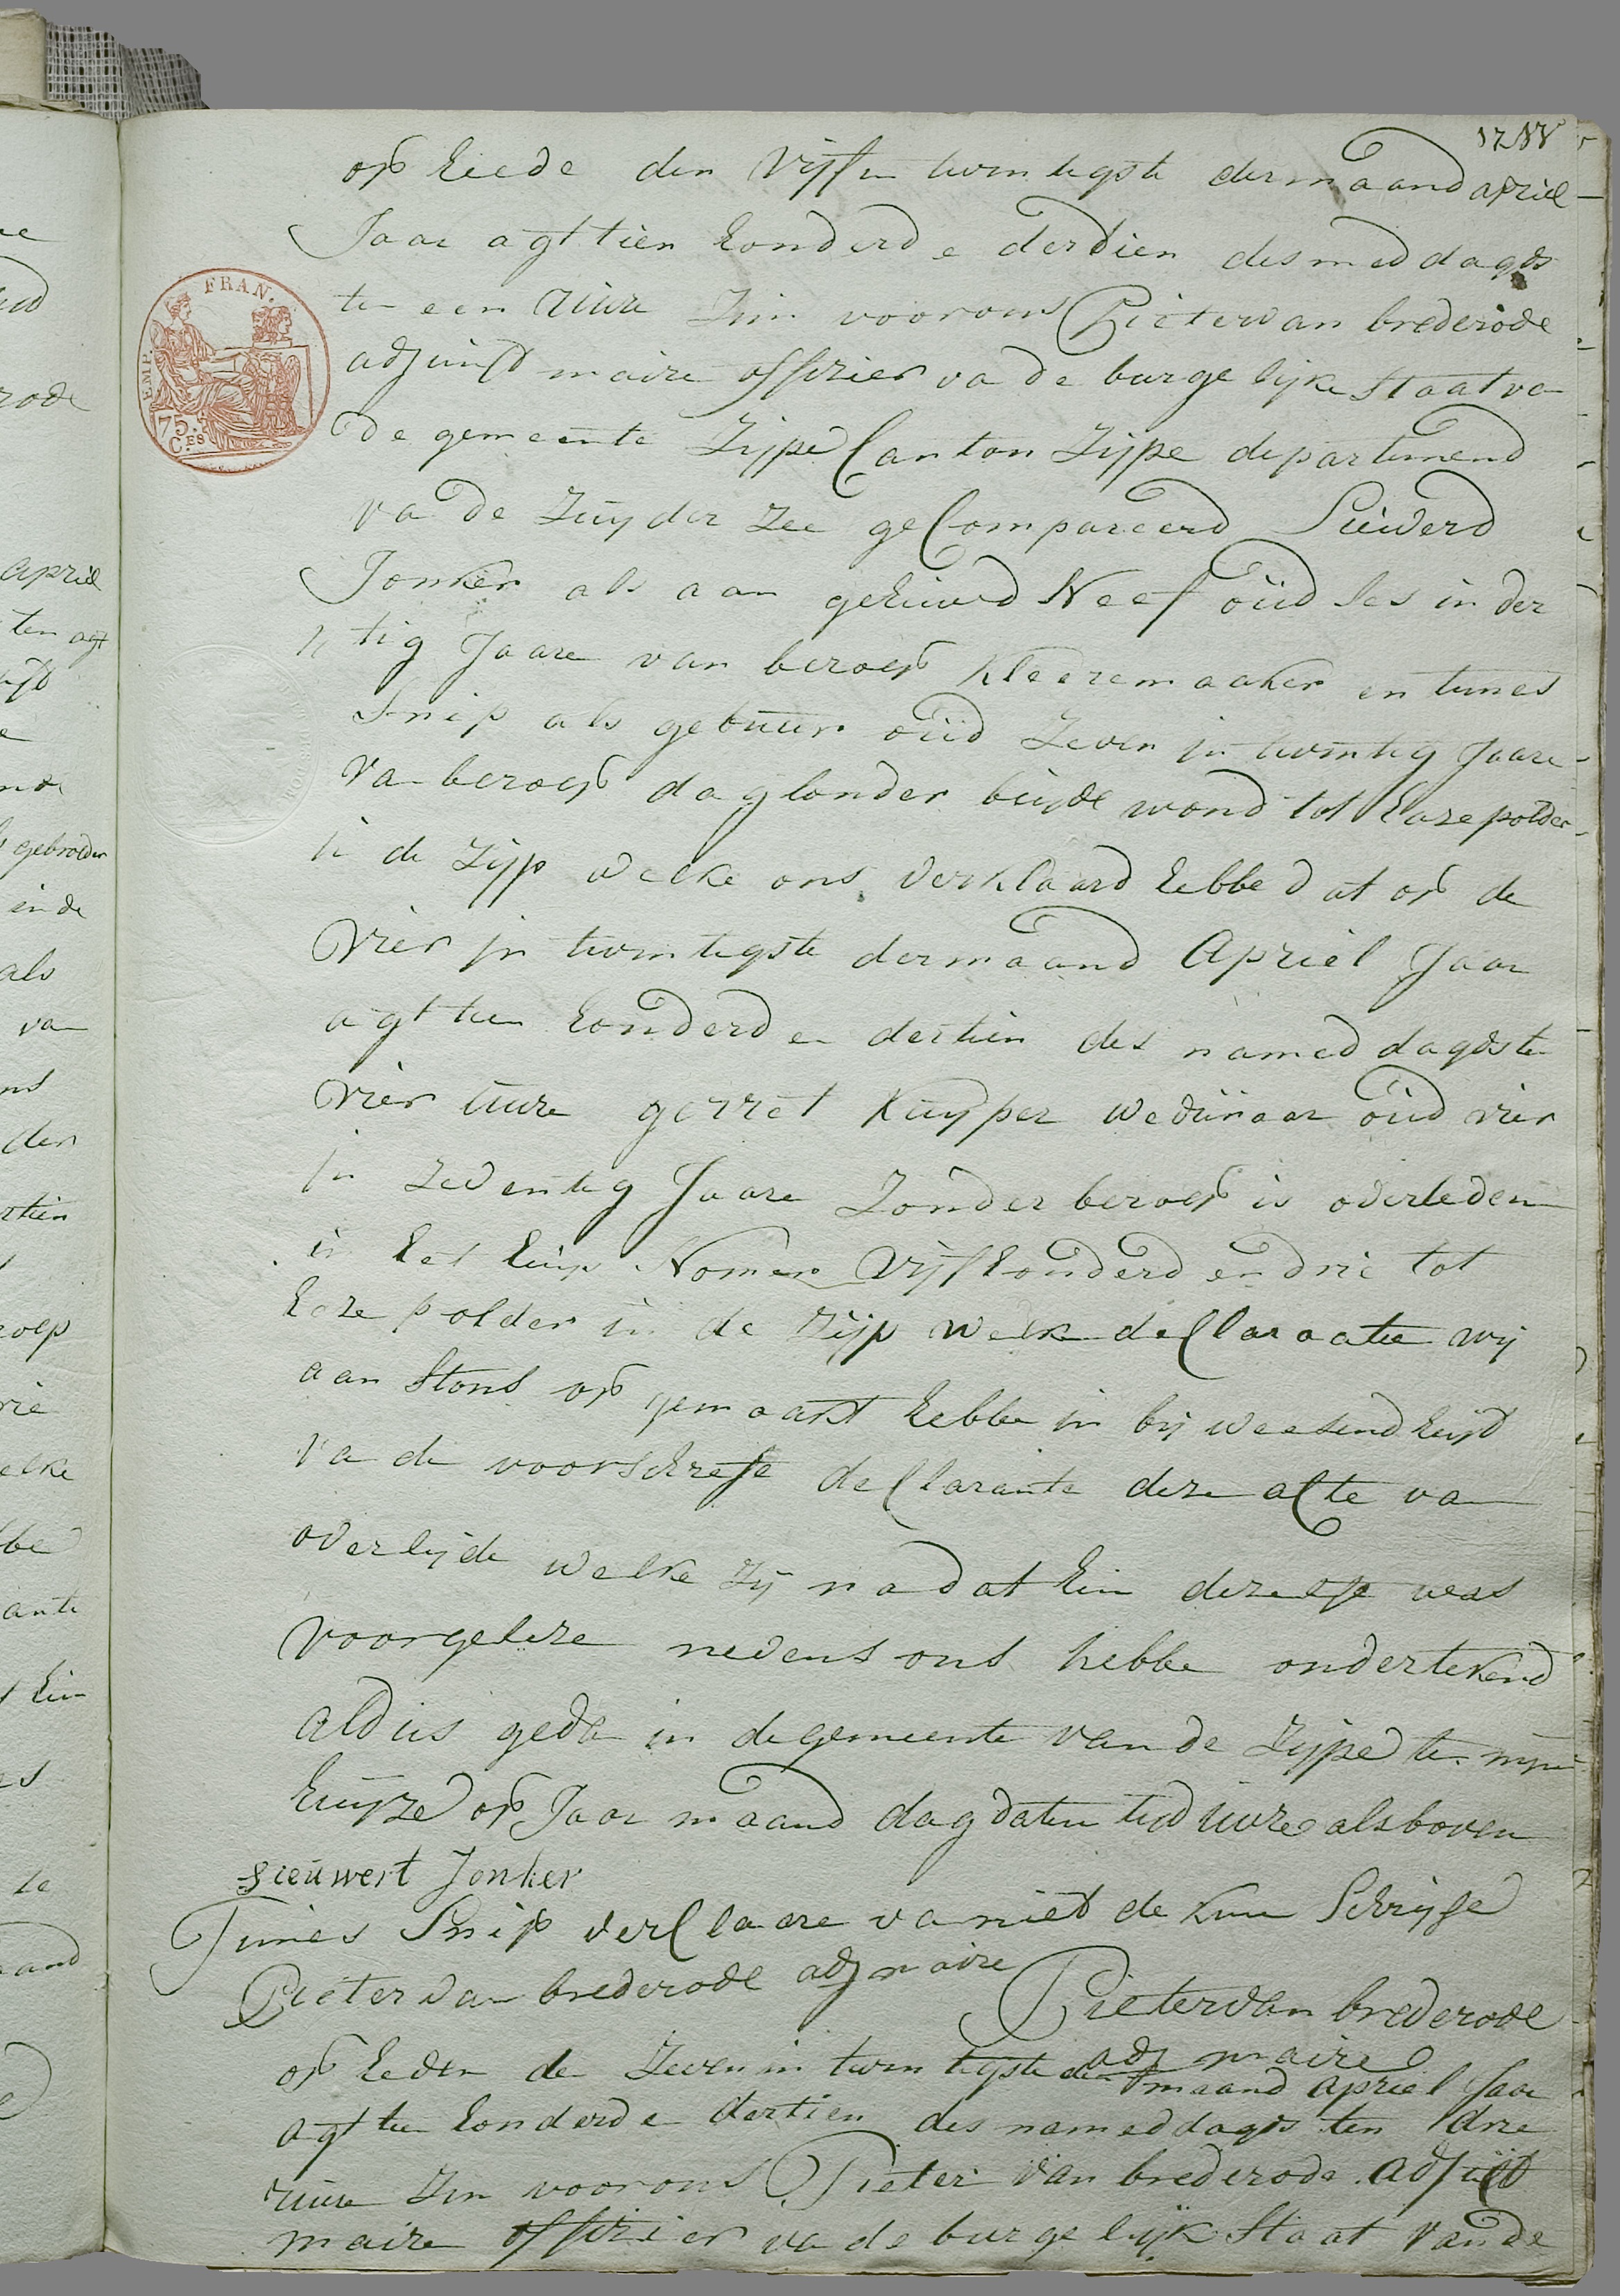 op heede den Vijf in twintigste dermaand apriel
Jaar agttien honderd e derdien des meddagds
ten een uure Zijn voor ons Pieter van brederode
FRAN.
EMP.
75.
C.ES
adjunkt maire offizier va de burgelijke Staat va
de gemeente Zijpe Canton Zijpe departemend
va de Zuyder Zee geCompareerd Sieiwerd
Jonker als aan gehuwd Neef oüd ses in der
tig Jaare van beroep kleeremaaker en tunes
Snip als gebuur oüd Zeven in twintig Jaare
Va beroep daglonder beijde wond tot Hazepolder
in de Zijp welke ons verklaard hebbe dat op de
Vier in twintigste dermaand Apriel Jaar
agttien honderd en dertien des named dagdste
Vier uure gerret Kuyper wedünaar oüd vier
in Zeventig Jaare Zonder beroep is overleden
in het huys Nomer Vijfhonderd en drie tot
haze polder in de Zijp welke deClaraatie wij
aan Stons op gemaakt hebbe in bij weesendheijd
Va de voorschrefe deClarante deze aCte va
overlijde welke Zij nadat hun dezelfe was
voorgeleze nevens ons hebbe ondertekend
aldus geda in de gemeente van de Zijpe te mijne
huijze op Jaar maand dag datu tijd uure als boven
sieuwert Jonker
Tunies Snip verClaare va niet de kune Schrijfe
Pieter van brederode adj maire
Pieter van brederode
adj maire
op heden de Zeven in twintigste der maand apriel Jaar
agttien honderd e dertien des nameddagds ten drie
uure Zijn voor ons Pieter van brederode adjukt
maire offizier va de burgelijk Staat van de